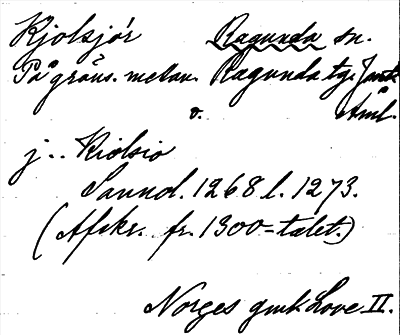 Kjolsjör Ragunda sn.
På gräns. mellan Ragunda tg. Jämtl.
o. Åml.
j.. Kiolsio
Sannol. 1268 l. 1273.
(Afskr. fr. 1300-talet.)
Norges gml. Love II.